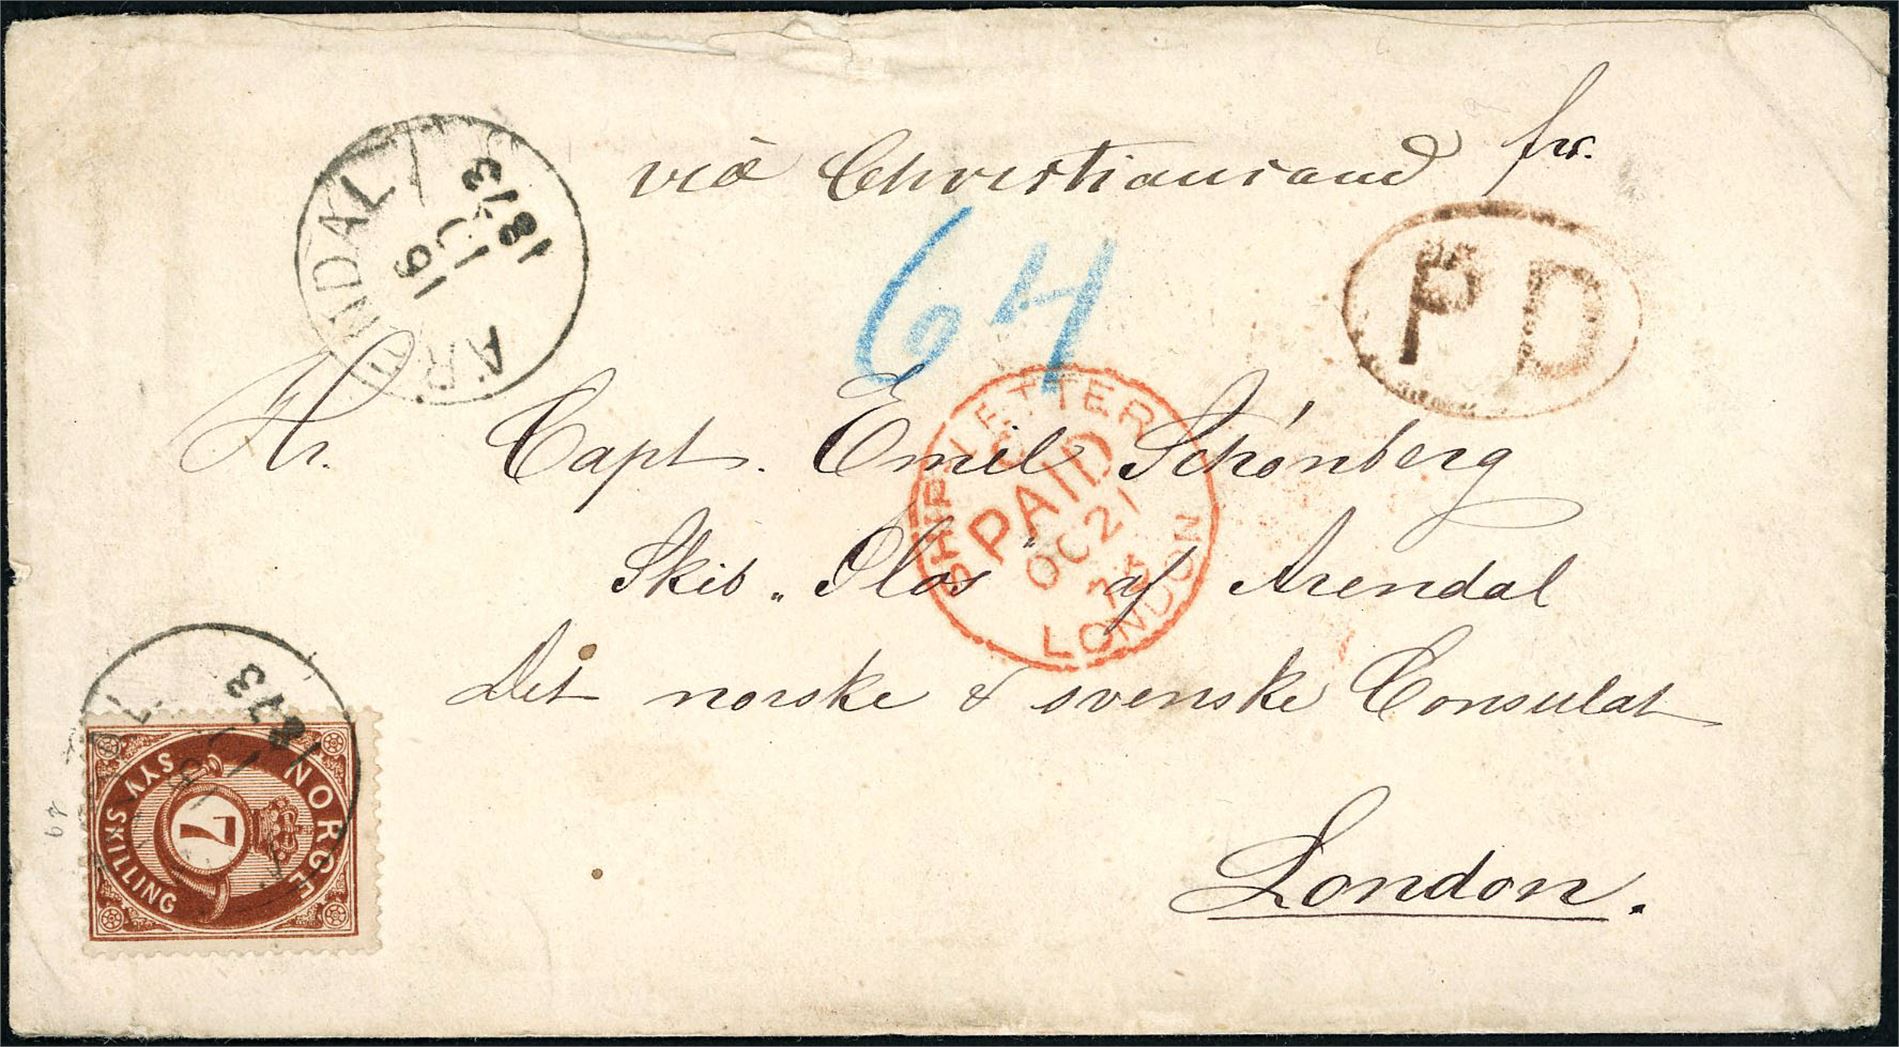 viâ Christiansand frco.
ARENDAL
16 10 1873
64
PD
Hr. Capt. Emil Schönberg
SHIP-LETTER
PAID
OC 21
73
LONDON
Skib „Olos" af Arendal
Det norske & svenske Consulat
London.
1873
NORGE
7
SYV SKILLING